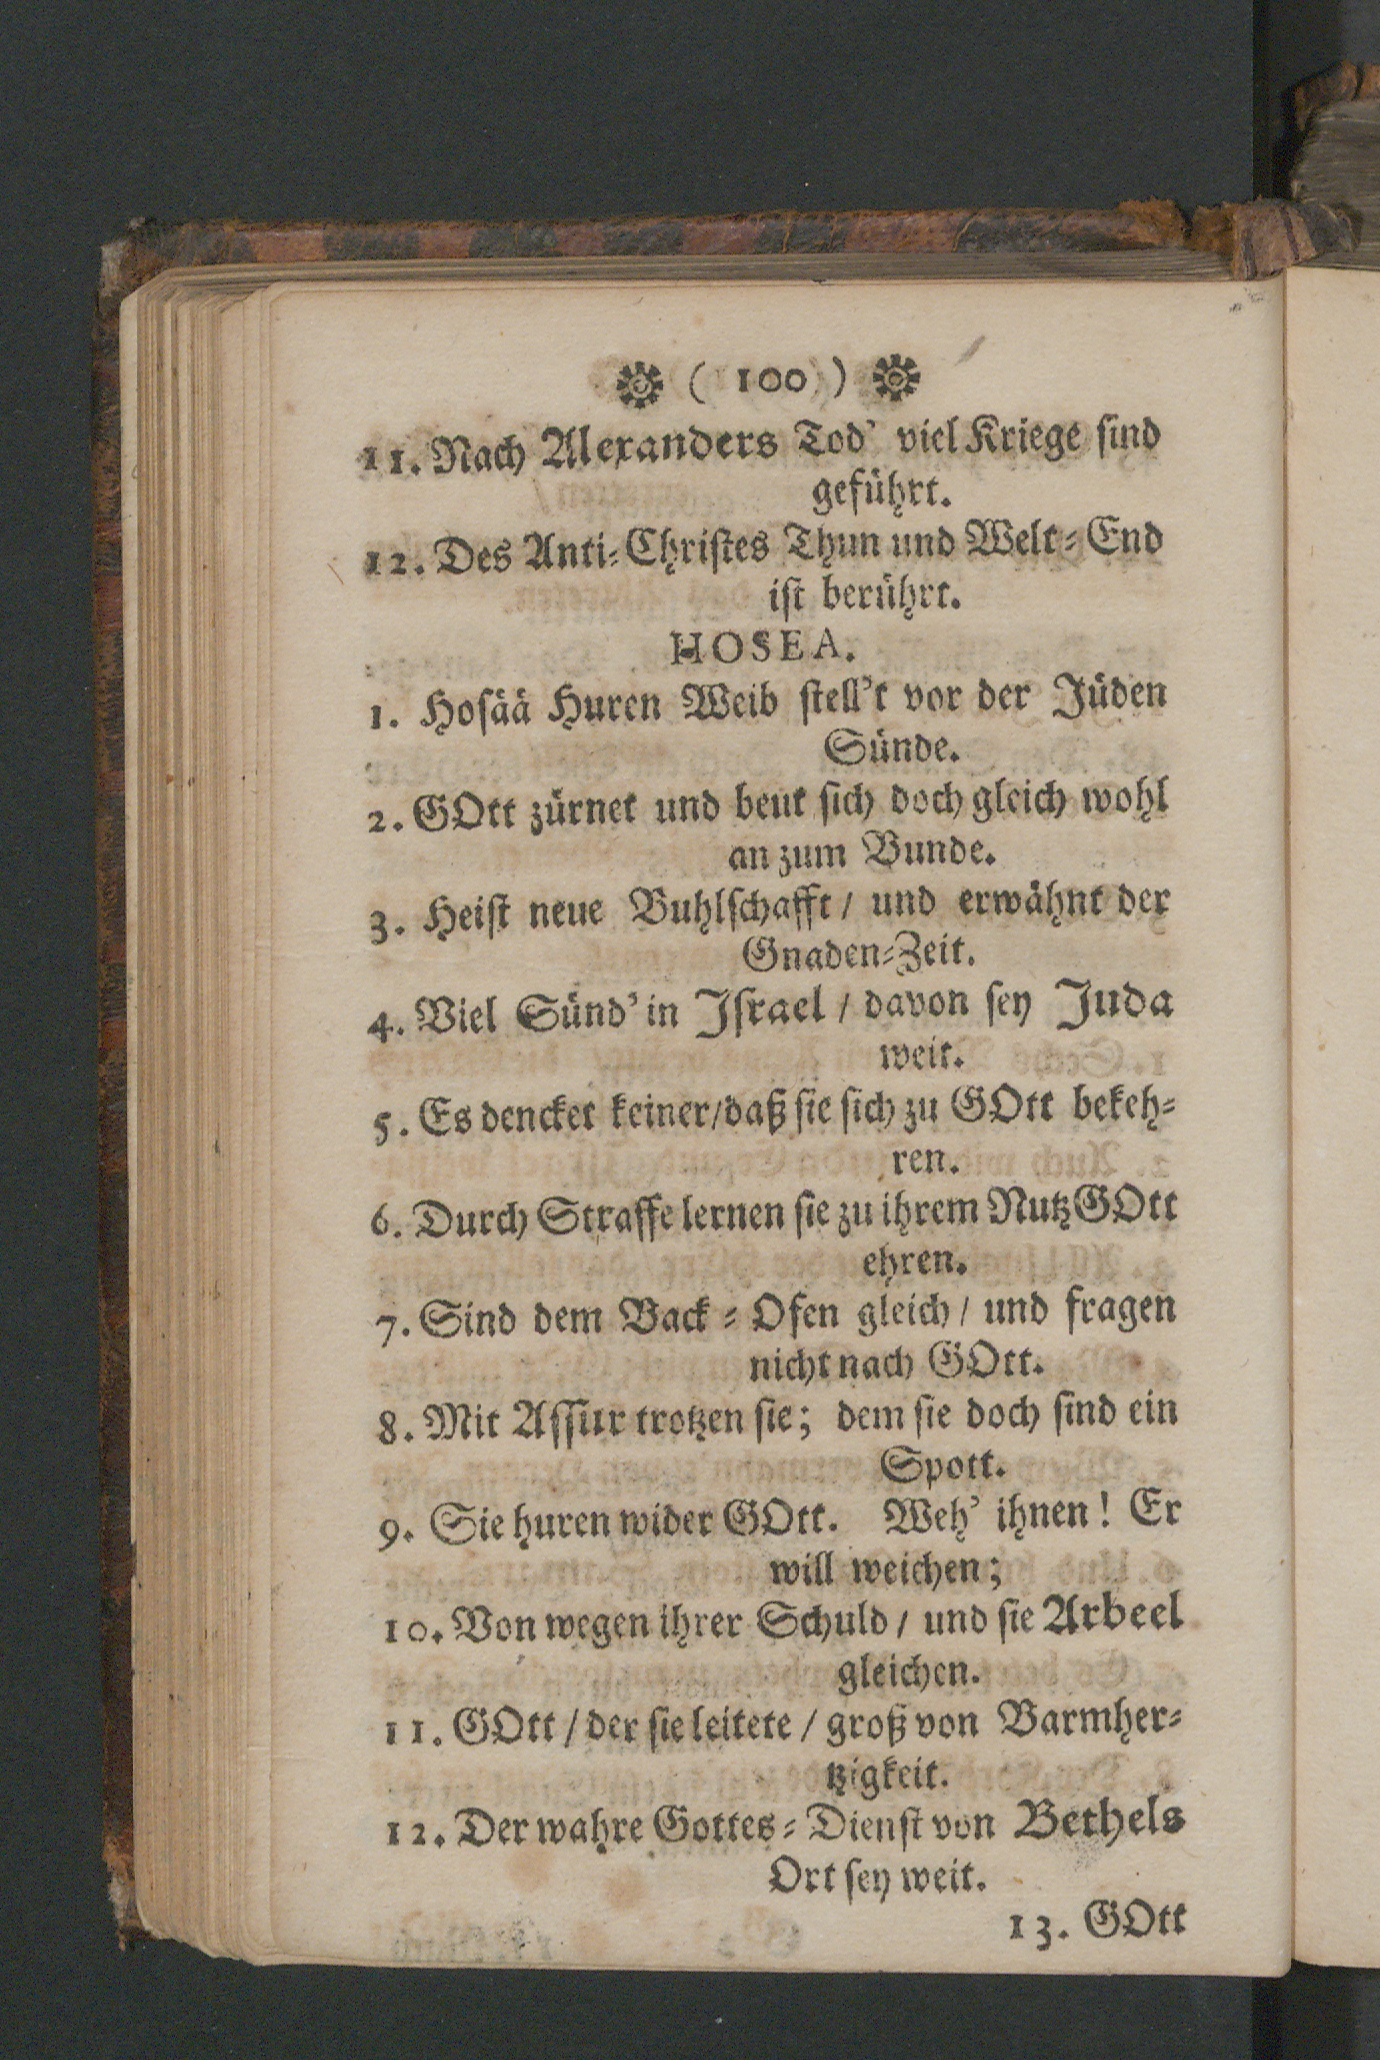 ( 100 )
11. Nach Alexanders Tod' viel Kriege sind
geführt.
12. Des Anti-Christes Thun und Welt-End
ist berührt.
HOSEA.
1. Hosää Huren Weib stell't vor der Jüden
Sünde.
2. GOtt zürnet und beut sich doch gleich wohl
an zum Bunde.
3. Heist neue Buhlschafft / und erwähnt der
Gnaden-Zeit.
4. Viel Sünd' in Israel / davon sey Juda
weit.
5. Es dencket keiner / daß sie sich zu GOtt bekeh-
ren.
6. Durch Straffe lernen sie zu ihrem Nutz GOtt
ehren.
7. Sind dem Back-Ofen gleich / und fragen
nicht nach GOtt.
8. Mit Assur trotzen sie; dem sie doch sind ein
Spott.
9. Sie huren wider GOtt. Weh' ihnen! Er
will weichen;
10. Von wegen ihrer Schuld / und sie Arbeel
gleichen.
11. GOtt / der sie leitete / groß von Barmher-
tzigkeit.
12. Der wahre Gottes-Dienst von Bethels
Ort sey weit.
13. GOtt